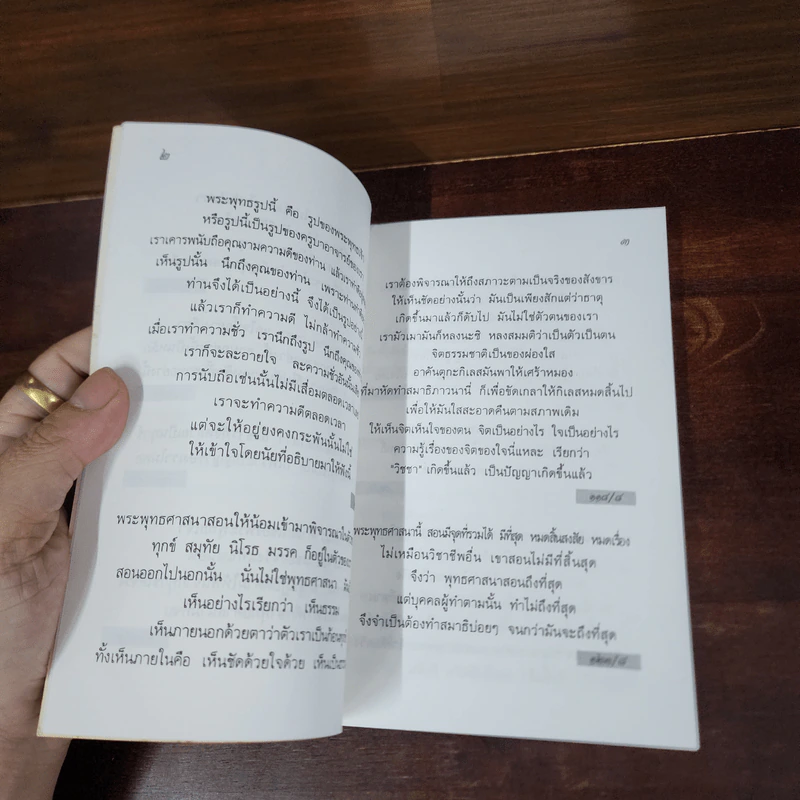 ๒
พระพุทธรูปนี้ คือ รูปของพระพุทธเจ้า
หรือรูปนี้เป็นรูปของครูบาอาจารย์ของเรา
เราเคารพนับถือคุณงามความดีของท่าน แล้วเราทำ
เห็นรูปนั้น นึกถึงคุณของท่าน เพราะท่าน
ท่านจึงได้เป็นอย่างนี้ จึงได้เป็นรูปอย่างนี้
แล้วเราก็ทำความดี ไม่กล้าทำความชั่ว
เมื่อเราทำความชั่ว เรานึกถึงรูป นึกถึงคุณของ
เราก็จะละอายใจ ละความชั่วอันนั้น
การนับถือเช่นนั้นไม่มีเสื่อมตลอดเวลา
เราจะทำความดีตลอดเวลา
แต่จะให้อยู่ยงคงกระพันนั้นไม่ใช่
ให้เข้าใจโดยนัยที่อธิบายมาให้ฟังนี้
พระพุทธศาสนาสอนให้น้อมเข้ามาพิจารณาใน
ทุกข์ สมุทัย นิโรธ มรรค ก็อยู่ในตัวของ
สอนออกไปนอกนั้น นั่นไม่ใช่พุทธศาสนา
เห็นอย่างไรเรียกว่า เห็นธรรม
เห็นภายนอกด้วยตาว่าตัวเราเป็นก้อนทุกข์
ทั้งเห็นภายในคือ เห็นชัดด้วยใจด้วย เห็นเป็น
๓
เราต้องพิจารณาให้ถึงสภาวะตามเป็นจริงของสังขาร
ให้เห็นชัดอย่างนั้นว่า มันเป็นเพียงสักแต่ว่าธาตุ
เกิดขึ้นมาแล้วก็ดับไป มันไม่ใช่ตัวตนของเรา
เรามัวเมามันก็หลงนะซิ หลงสมมติว่าเป็นตัวเป็นตน
จิตธรรมชาติเป็นของผ่องใส
อาคันตุกะกิเลสมันพาให้เศร้าหมอง
ที่มาหัดทำสมาธิภาวนานี่ ก็เพื่อขัดเกลาให้กิเลสหมดสิ้นไป
เพื่อให้มันใสสะอาดคืนตามสภาพเดิม
ให้เห็นจิตเห็นใจของตน จิตเป็นอย่างไร ใจเป็นอย่างไร
ความรู้เรื่องของจิตของใจนี่แหละ เรียกว่า
"วิชชา" เกิดขึ้นแล้ว เป็นปัญญาเกิดขึ้นแล้ว
๑๑๘/๘
พระพุทธศาสนานี้ สอนมีจุดที่รวมได้ มีที่สุด หมดสิ้นสงสัย หมดเรื่อง
ไม่เหมือนวิชาชีพอื่น เขาสอนไม่มีที่สิ้นสุด
จึงว่า พุทธศาสนาสอนถึงที่สุด
แต่บุคคลผู้ทำตามนั้น ทำไม่ถึงที่สุด
จึงจำเป็นต้องทำสมาธิบ่อยๆ จนกว่ามันจะถึงที่สุด
๑๒๓/๘